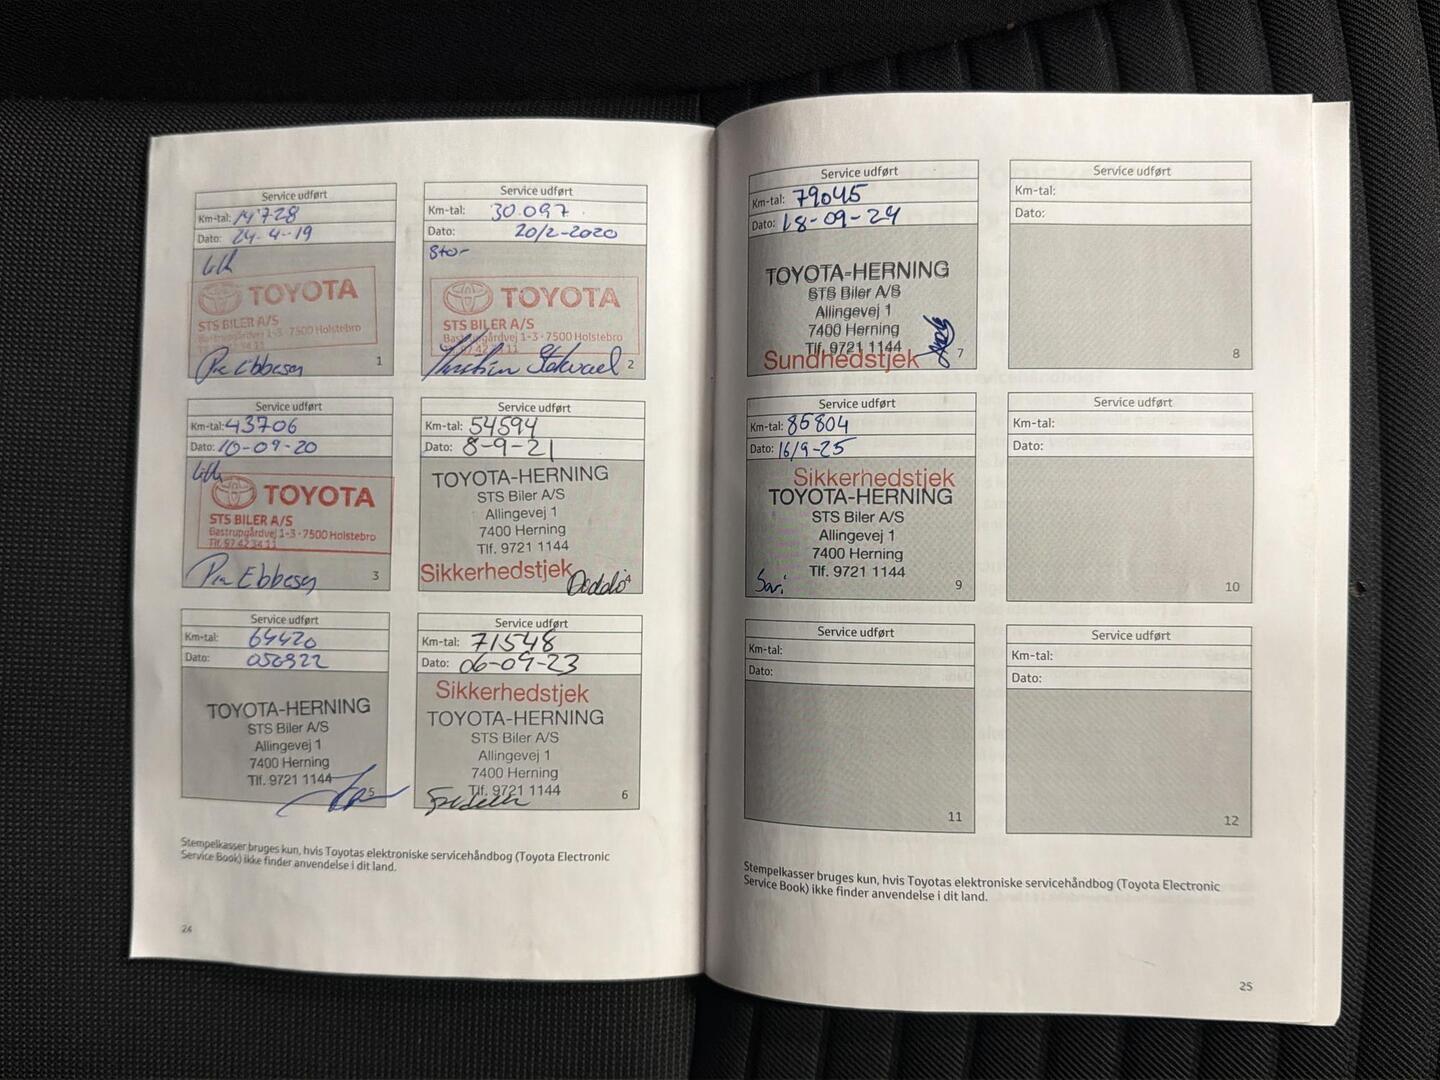 Service udført
Km-tal: 14728
Dato: 24-4-19
TOYOTA
STS BILER A/S
Bastrupgårdvej 1-3 · 7500 Holstebro
1
Service udført
Km-tal: 30.097
Dato: 20/2-2020
Stor
TOYOTA
STS BILER A/S
Bastrupgårdvej 1-3 · 7500 Holstebro
2
Service udført
Km-tal: 43706
Dato: 10-09-20
TOYOTA
STS BILER A/S
Bastrupgårdvej 1-3 · 7500 Holstebro
Tlf. 97 42 34 11
3
Service udført
Km-tal: 54594
Dato: 8-9-21
TOYOTA-HERNING
STS Biler A/S
Allingevej 1
7400 Herning
Tlf. 9721 1144
Sikkerhedstjek
4
Service udført
Km-tal: 64420
Dato:
TOYOTA-HERNING
STS Biler A/S
Allingevej 1
7400 Herning
Tlf. 9721 1144
5
Service udført
Km-tal: 71548
Dato: 06-09-23
Sikkerhedstjek
TOYOTA-HERNING
STS Biler A/S
Allingevej 1
7400 Herning
Tlf. 9721 1144
6
Stempelkasser bruges kun, hvis Toyotas elektroniske servicehåndbog (Toyota Electronic
Service Book) ikke finder anvendelse i dit land.
24
Service udført
Km-tal: 79045
Dato: 18-09-24
TOYOTA-HERNING
STS Biler A/S
Allingevej 1
7400 Herning
Tlf. 9721 1144
Sundhedstjek
7
Service udført
Km-tal:
Dato:
8
Service udført
Km-tal: 85804
Dato: 16/9-25
Sikkerhedstjek
TOYOTA-HERNING
STS Biler A/S
Allingevej 1
7400 Herning
Tlf. 9721 1144
9
Service udført
Km-tal:
Dato:
10
Service udført
Km-tal:
Dato:
11
Service udført
Km-tal:
Dato:
12
Stempelkasser bruges kun, hvis Toyotas elektroniske servicehåndbog (Toyota Electronic
Service Book) ikke finder anvendelse i dit land.
25